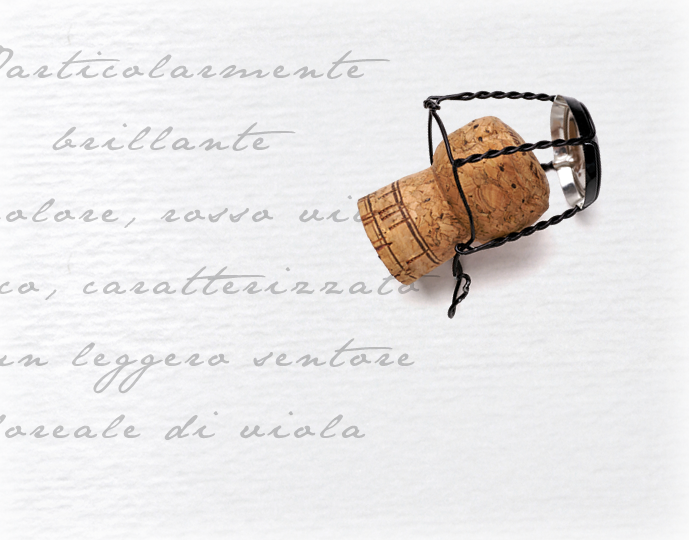 Particolarmente
brillante
colore, rosso
co, caratterizzato
un leggero sentore
floreale di viola